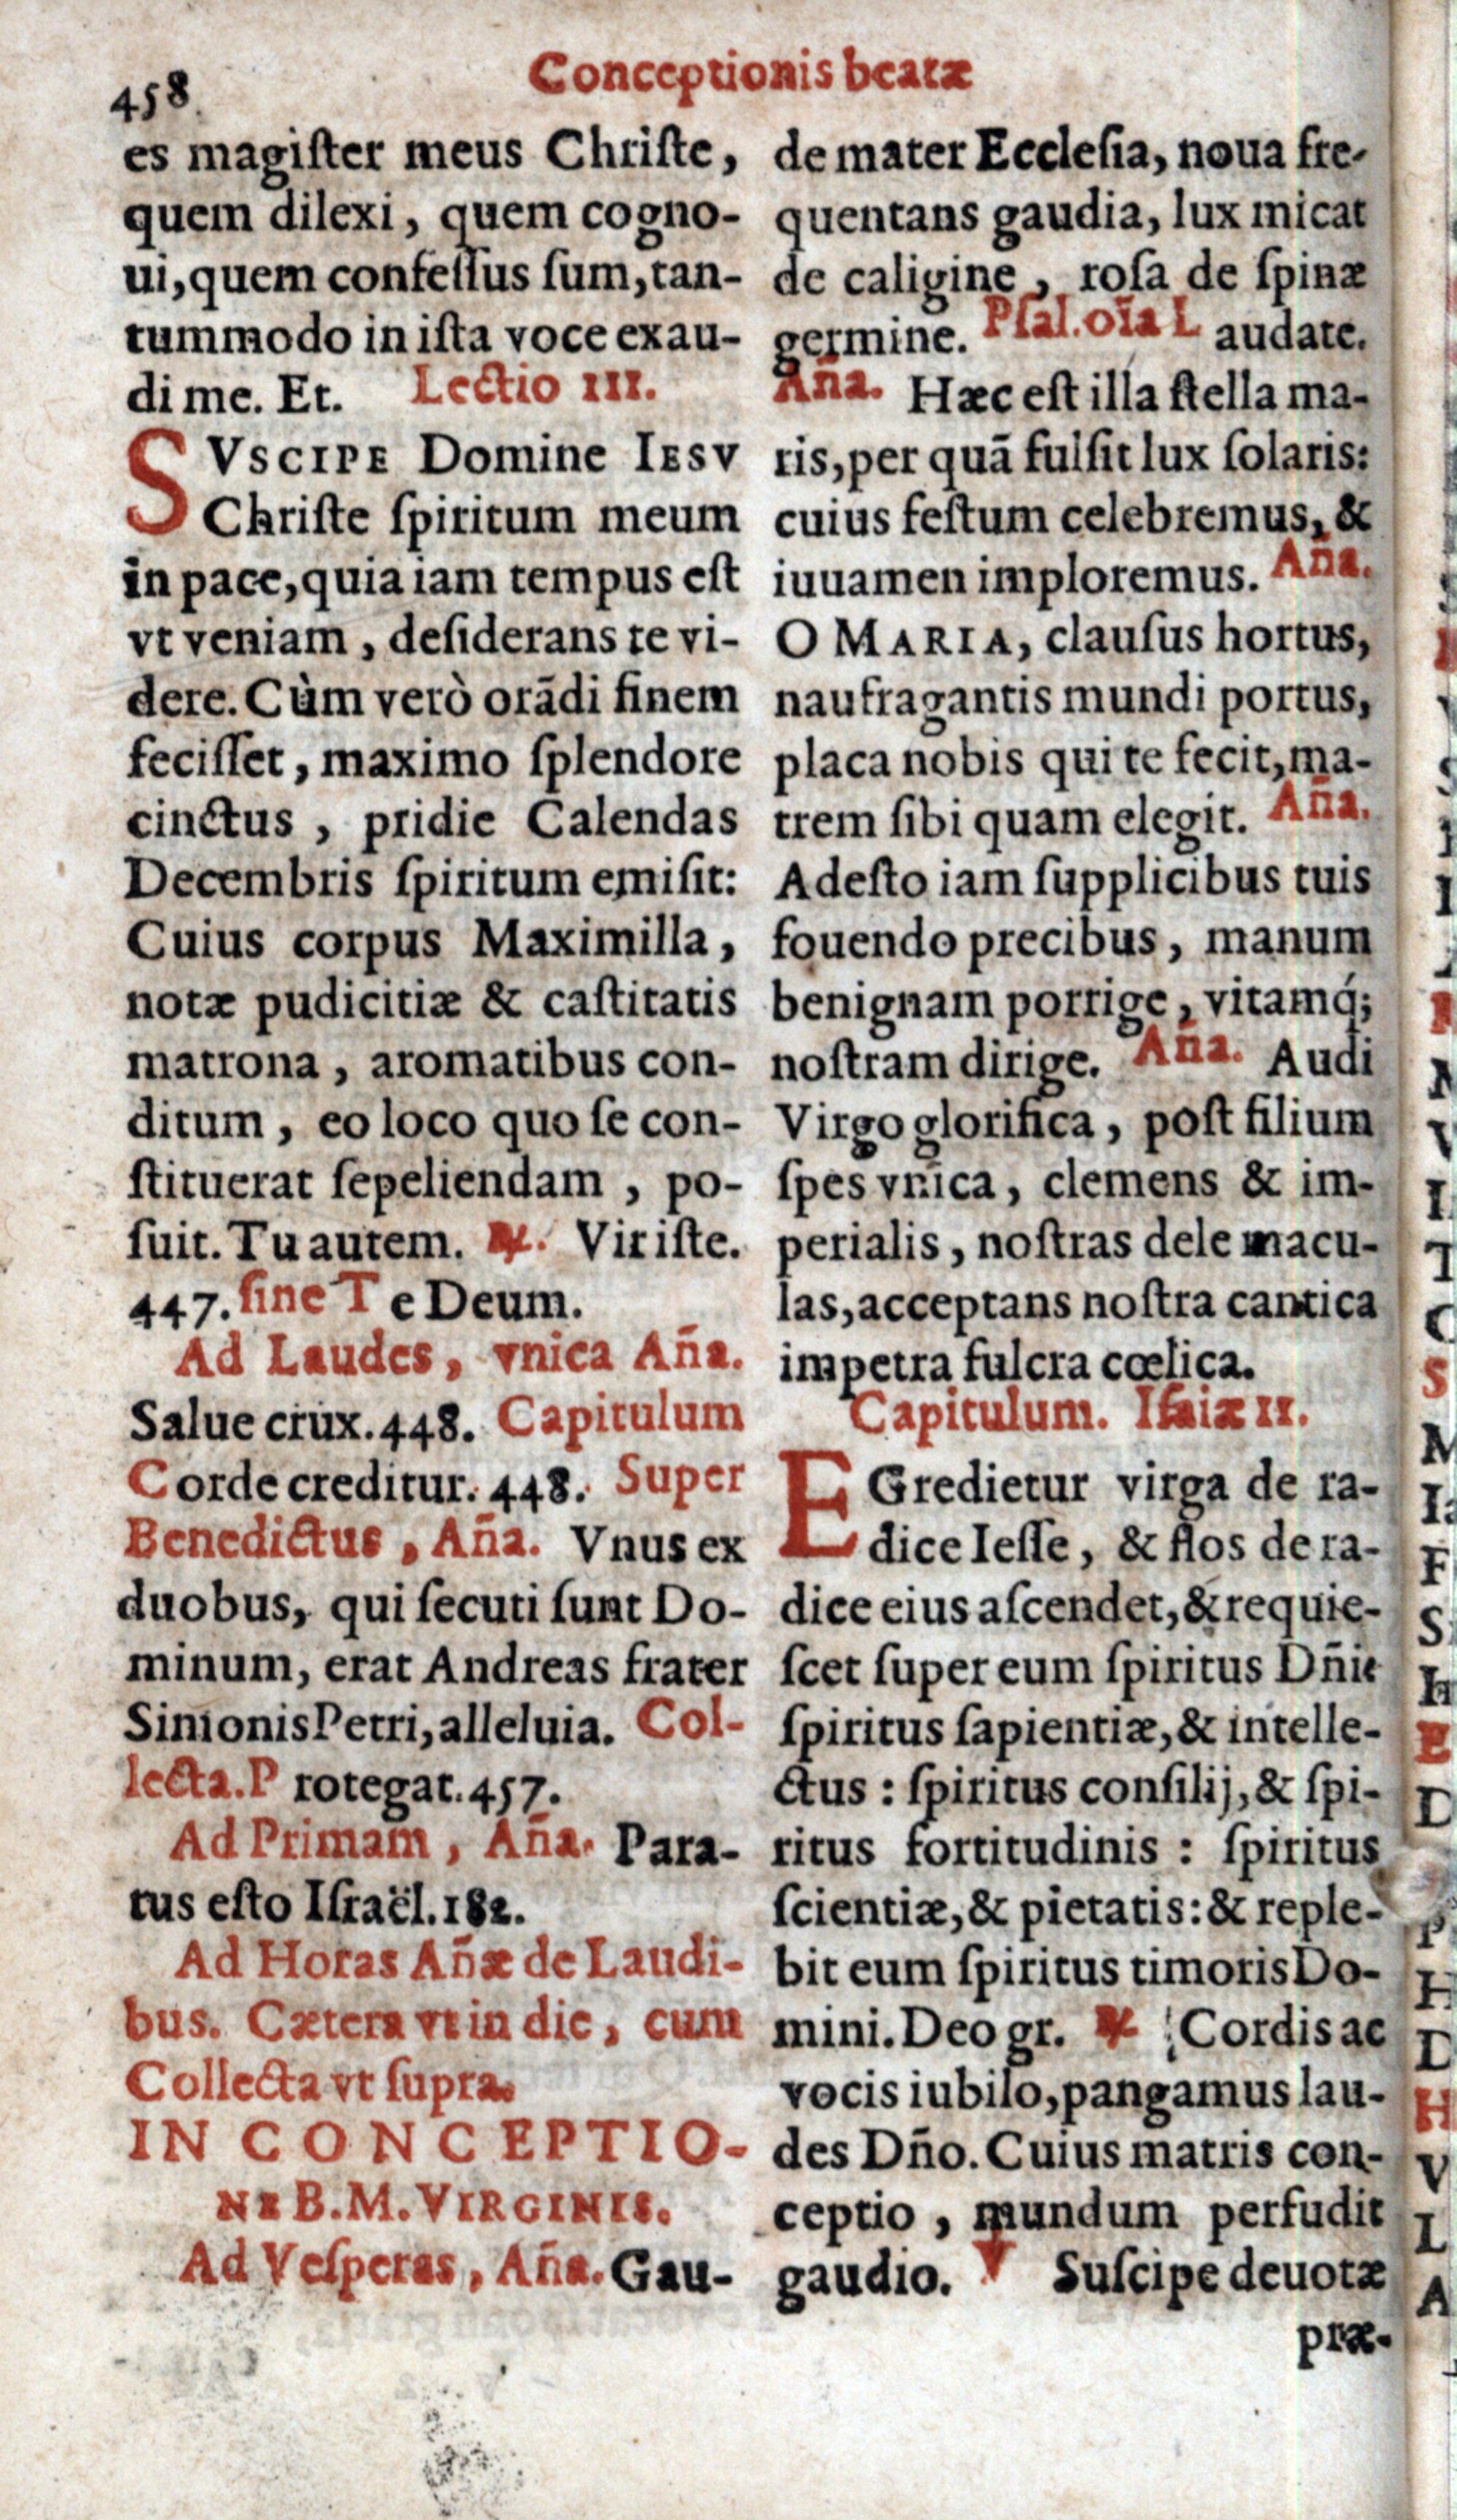 458
Conceptionis beatæ
es magiſter meus Chriſte,
quem dilexi, quem cogno-
ui, quem confeſſus ſum, tan-
tummodo in iſta voce exau-
di me. Et. Lectio III.
SVSCIPE Domine IESV
Chriſte ſpiritum meum
in pace, quia iam tempus eſt
vt veniam, deſiderans te vi-
dere. Cùm verò orādi finem
feciſſet, maximo ſplendore
cinctus, pridie Calendas
Decembris ſpiritum emiſit:
Cuius corpus Maximilla,
notæ pudicitiæ & caſtitatis
matrona, aromatibus con-
ditum, eo loco quo ſe con-
ſtituerat ſepeliendam, po-
ſuit. Tu autem. ℟. Vir iſte.
447. ſine Te Deum.
Ad Laudes, vnica Aña.
Salue crux. 448. Capitulum
Corde creditur. 448. Super
Benedictus, Aña. Vnus ex
duobus, qui ſecuti ſunt Do-
minum, erat Andreas frater
Simonis Petri, alleluia. Col-
lecta. Protegat. 457.
Ad Primam, Aña. Para-
tus eſto Iſraël. 182.
Ad Horas Añæ de Laudi-
bus. Cætera vt in die, cum
Collecta vt ſupra.
IN CONCEPTIO-
NE B. M. VIRGINIS.
Ad Veſperas, Aña. Gau-
de mater Eccleſia, noua fre-
quentans gaudia, lux micat
de caligine, roſa de ſpinæ
germine. Pſal. oīa Laudate.
Aña. Hæc eſt illa ſtella ma-
ris, per quā fulſit lux ſolaris:
cuius feſtum celebremus, &
iuuamen imploremus. Aña.
O MARIA, clauſus hortus,
naufragantis mundi portus,
placa nobis qui te fecit, ma-
trem ſibi quam elegit. Aña.
Adeſto iam ſupplicibus tuis
fouendo precibus, manum
benignam porrige, vitamq́;
noſtram dirige. Aña. Audi
Virgo glorifica, poſt filium
ſpes vnica, clemens & im-
perialis, noſtras dele macu-
las, acceptans noſtra cantica
impetra fulcra cœlica.
Capitulum. Iſaiæ II.
EGredietur virga de ra-
dice Ieſſe, & flos de ra-
dice eius aſcendet, & requie-
ſcet ſuper eum ſpiritus Dñi:
ſpiritus ſapientiæ, & intelle-
ctus: ſpiritus conſilij, & ſpi-
ritus fortitudinis: ſpiritus
ſcientiæ, & pietatis: & reple-
bit eum ſpiritus timoris Do-
mini. Deo gr. ℟ Cordis ac
vocis iubilo, pangamus lau-
des Dño. Cuius matris con-
ceptio, mundum perfudit
gaudio. ℣ Suſcipe deuotæ
præ-